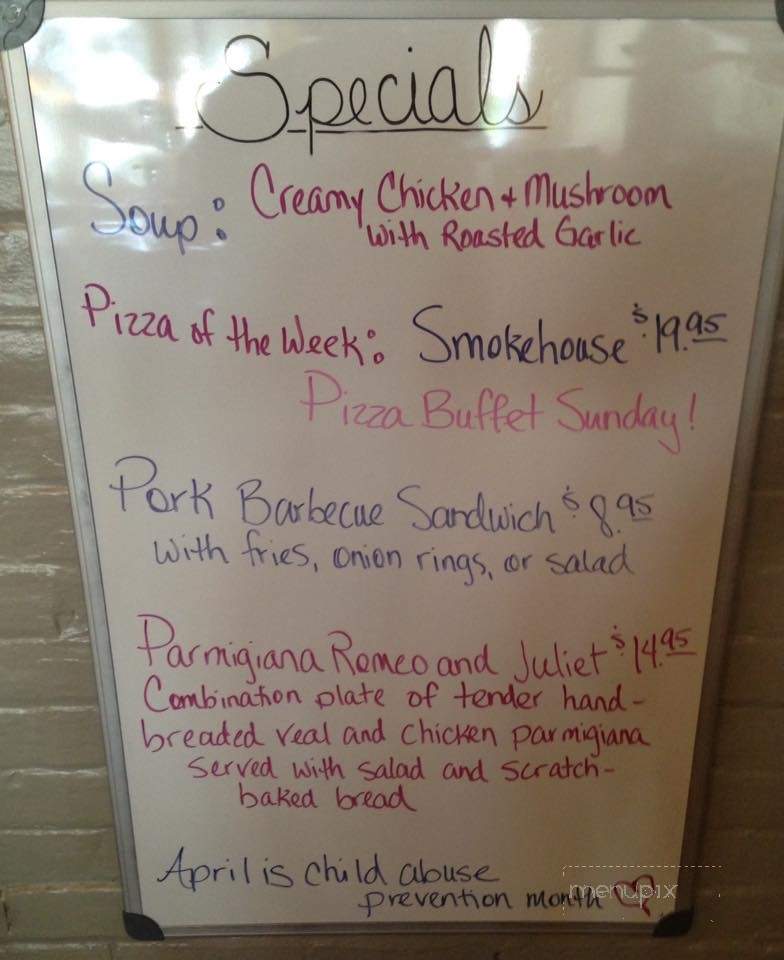 Specials
Soup: Creamy Chicken + Mushroom
with Roasted Garlic
Pizza of the Week: Smokehouse $19.95
Pizza Buffet Sunday!
Pork Barbecue Sandwich $8.95
with fries, onion rings, or salad
Parmigiana Romeo and Juliet $14.95
Combination plate of tender hand-
breaded veal and chicken parmigiana
served with salad and scratch-
baked bread
April is child abuse
prevention month
menupix